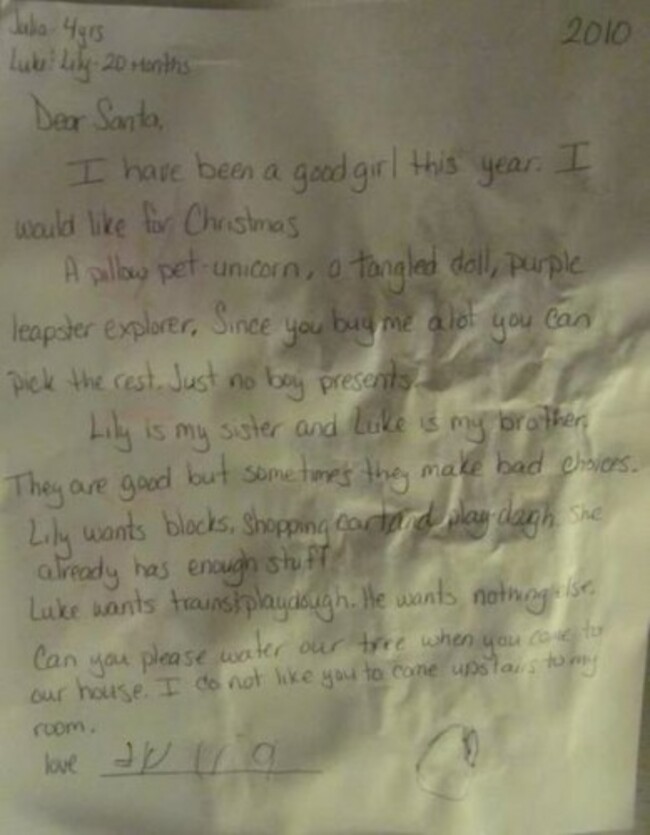 Julia - 4yrs
2010
Luke & Lily - 20 months
Dear Santa,
I have been a good girl this year. I
would like for Christmas
A pillow pet-unicorn, a tangled doll, purple
leapster explorer. Since you buy me alot you can
pick the rest. Just no boy presents.
Lily is my sister and Luke is my brother.
They are good but sometimes they make bad choices.
Lily wants blocks, shopping cart and play-dagh. She
already has enough stuff.
Luke wants trains & playdough. He wants nothing else.
Can you please water our tree when you come to
our house. I do not like you to come upstairs to my
room.
love